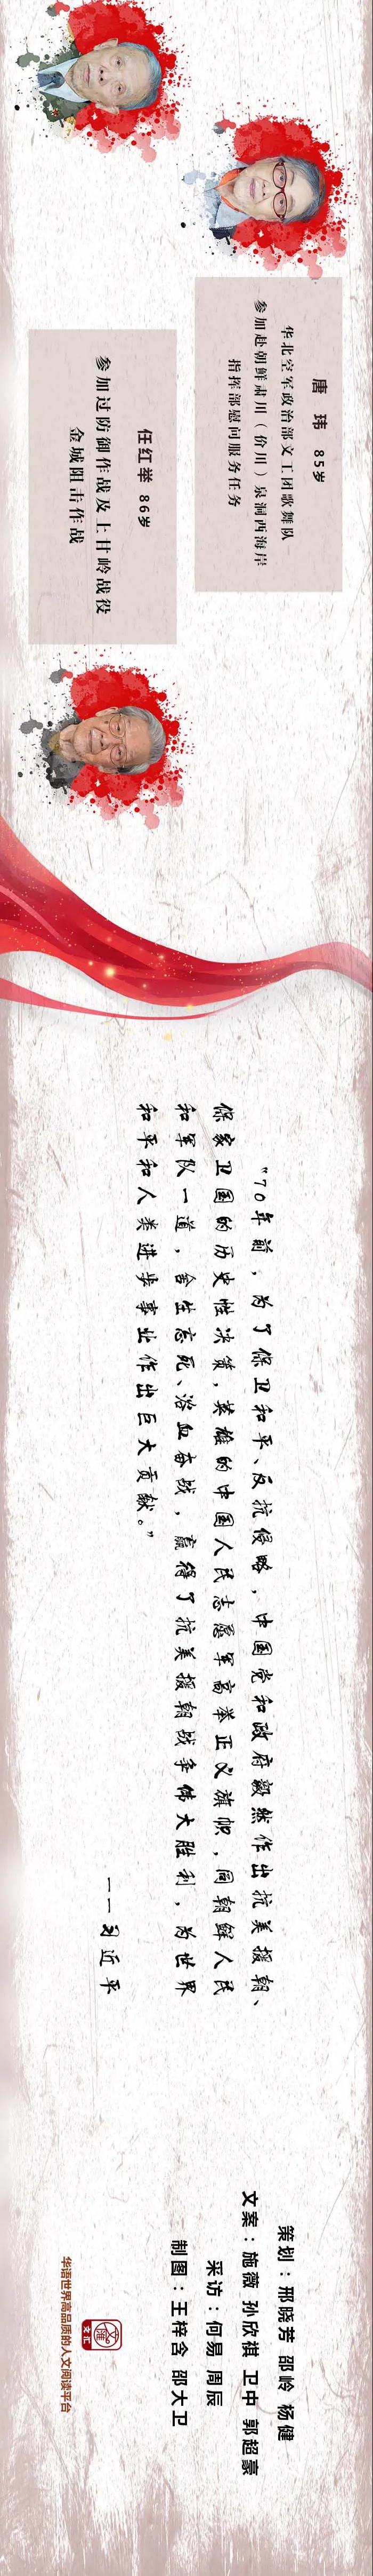 唐 玮 85岁
华北空军政治部文工团歌舞队
参加赴朝鲜肃川（价川）泉洞西海岸
指挥部慰问服务任务
任红举 86岁
参加过防御作战及上甘岭战役
金城阻击作战
“70年前，为了保卫和平、反抗侵略，中国党和政府毅然作出抗美援朝、
保家卫国的历史性决策，英雄的中国人民志愿军高举正义旗帜，同朝鲜人民
和军队一道，舍生忘死、浴血奋战，赢得了抗美援朝战争伟大胜利，为世界
和平和人类进步事业作出巨大贡献。”
——习近平
策划：邢晓芳 邵岭 杨健
文案：施薇 孙欣祺 卫中 郭超豪
采访：何易 周辰
制图：王梓含 邵大卫
文汇
华语世界高品质的人文阅读平台